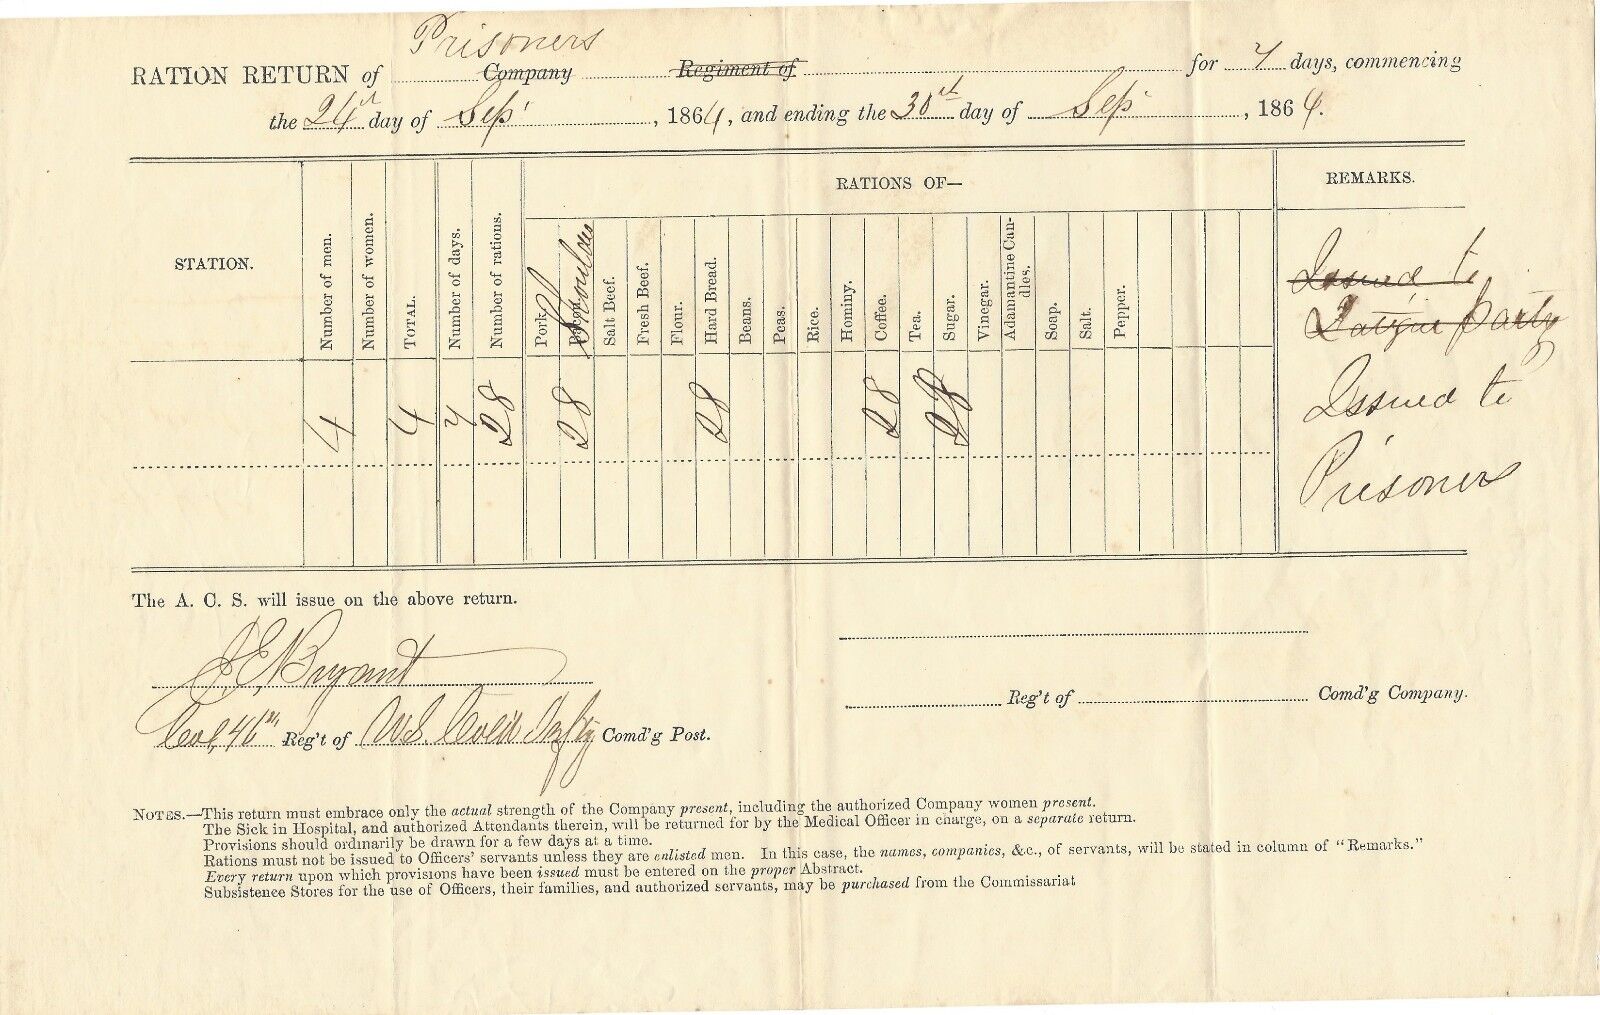 Prisoners
RATION RETURN of Company Regiment of for 7 days, commencing
the 24th day of Sep', 1864, and ending the 30th day of Sep', 1864.
STATION.
Number of men.
Number of women.
TOTAL.
Number of days.
Number of rations.
RATIONS OF—
Pork.
Bacon.
Shoulders
Salt Beef.
Fresh Beef.
Flour.
Hard Bread.
Beans.
Peas.
Rice.
Hominy.
Coffee.
Tea.
Sugar.
Vinegar.
Adamantine Can-
dles.
Soap.
Salt.
Pepper.
REMARKS.
Issued to
Fatigue party
Issued to
Prisoners
4 4 7 28 28 28 28 28
The A. C. S. will issue on the above return.
J. E. Bryant
Col, 46th Reg't of U.S. Col'd Inf'ty Comd'g Post.
Reg't of Comd'g Company.
NOTES.—This return must embrace only the actual strength of the Company present, including the authorized Company women present.
The Sick in Hospital, and authorized Attendants therein, will be returned for by the Medical Officer in charge, on a separate return.
Provisions should ordinarily be drawn for a few days at a time.
Rations must not be issued to Officers' servants unless they are enlisted men. In this case, the names, companies, &c., of servants, will be stated in column of "Remarks."
Every return upon which provisions have been issued must be entered on the proper Abstract.
Subsistence Stores for the use of Officers, their families, and authorized servants, may be purchased from the Commissariat